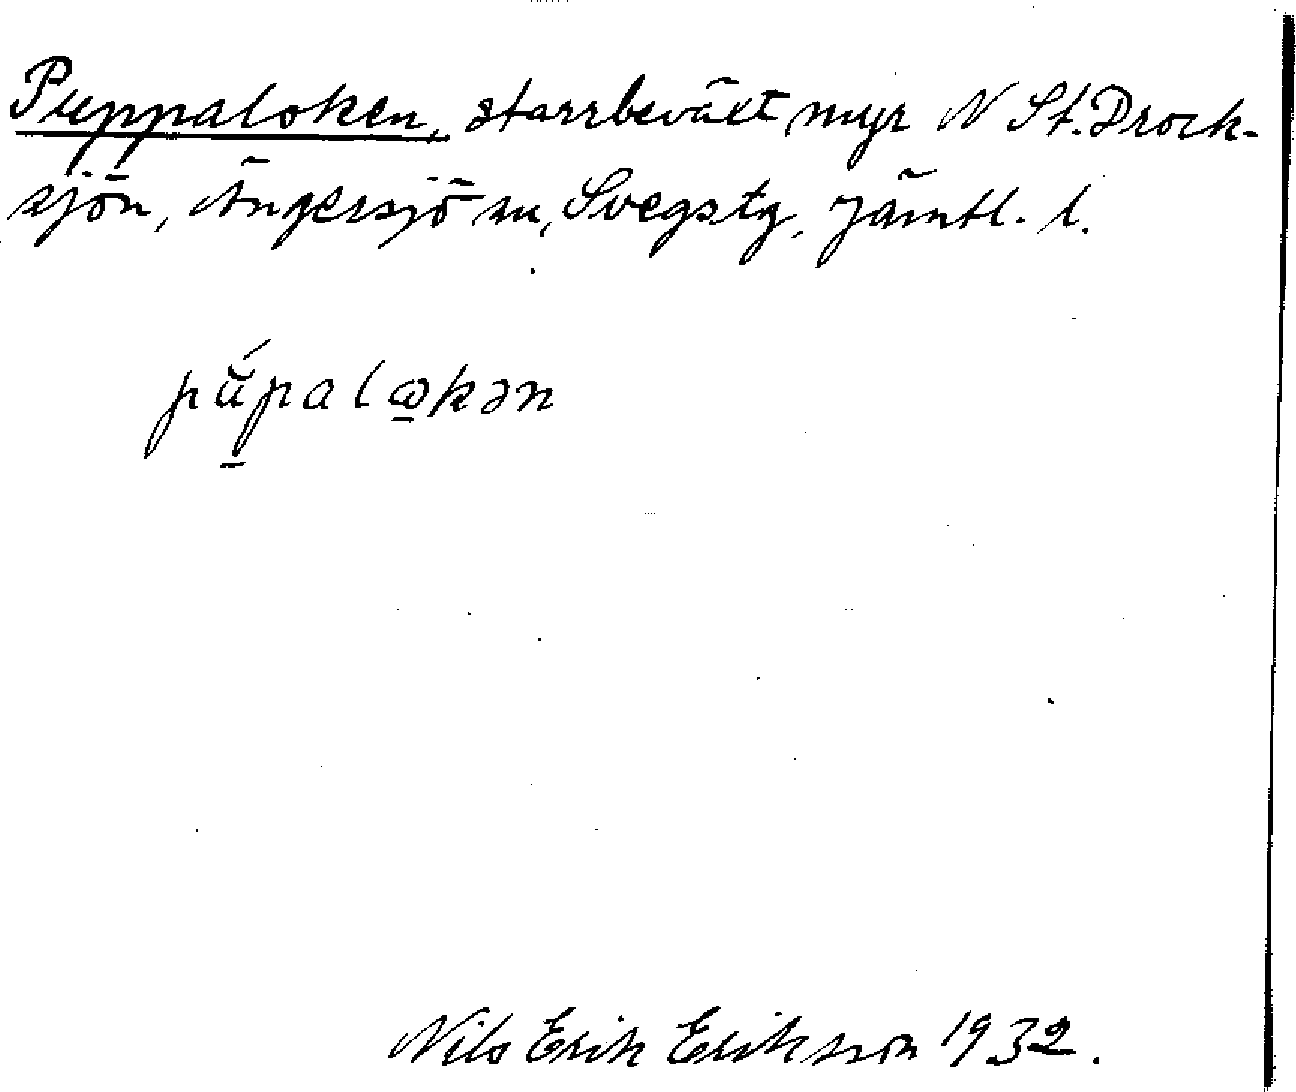 Puppaloken, starrbeväxt myr N St. Drock-
sjön, Ängersjö sn, Svegs tg, Jämtl. l.
pŭ́palokən
Nils Erik Eriksson 1932.